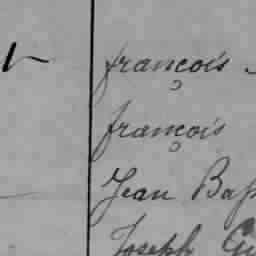 françois
françois
Jean Bap
Joseph